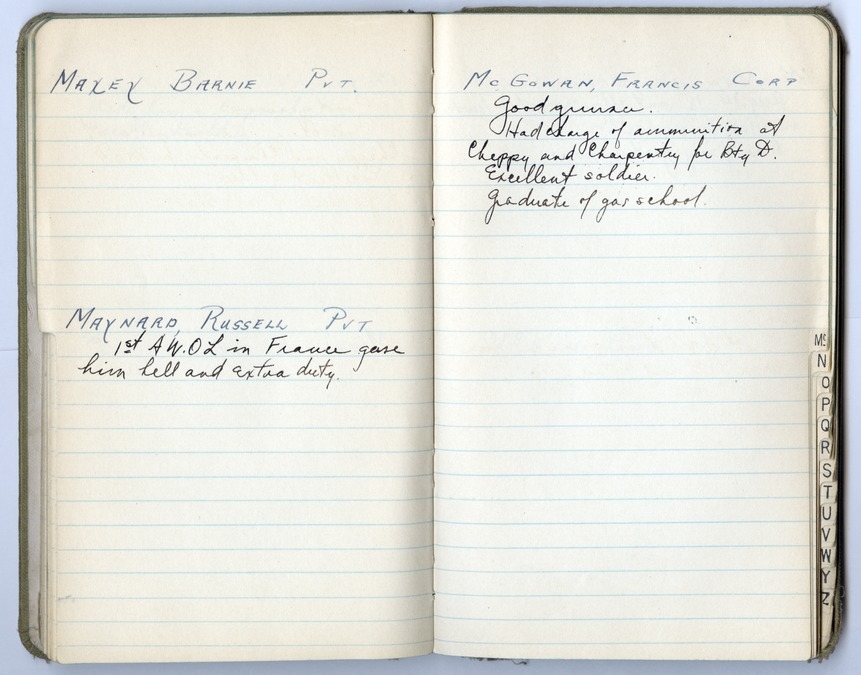 MAXEY BARNIE PVT.
MAYNARD, RUSSELL PVT
1st A.W.O.L in France gave
him hell and extra duty.
MC GOWAN, FRANCIS CORP
Good gunner.
Had charge of ammunition at
Cheppy and Charpentry for Bty D.
Excellent soldier.
Graduate of gas school.
Mc
N
O
P
Q
R
S
T
U
V
W
Y
Z